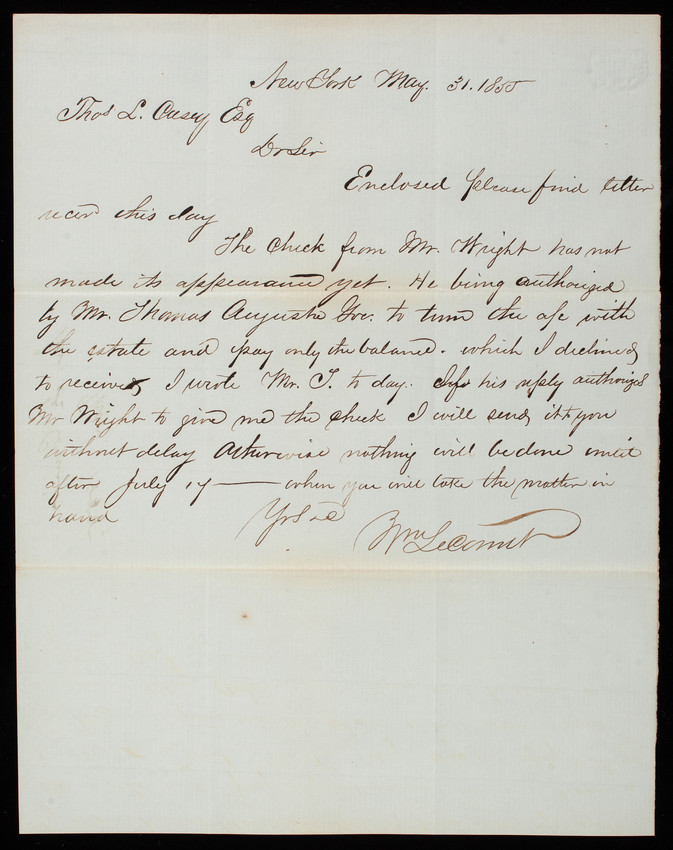 New York May. 31. 1855
Thos L. Casey Esq
Dr Sir
Enclosed please find letter
recd this day
The check from Mr. Wright has not
made its appearance yet. He being authorized
by Mr. Thomas Auguste to turn the a/c with
the estate and pay only the balance. which I declined
to receive, I wrote Mr. T. to day. If his reply authorizes
Mr Wright to give me the check I will send it to you
without delay Otherwise nothing will be done until
after July 17 — when you will take the matter in
hand Yrs &c
Wm LeComt